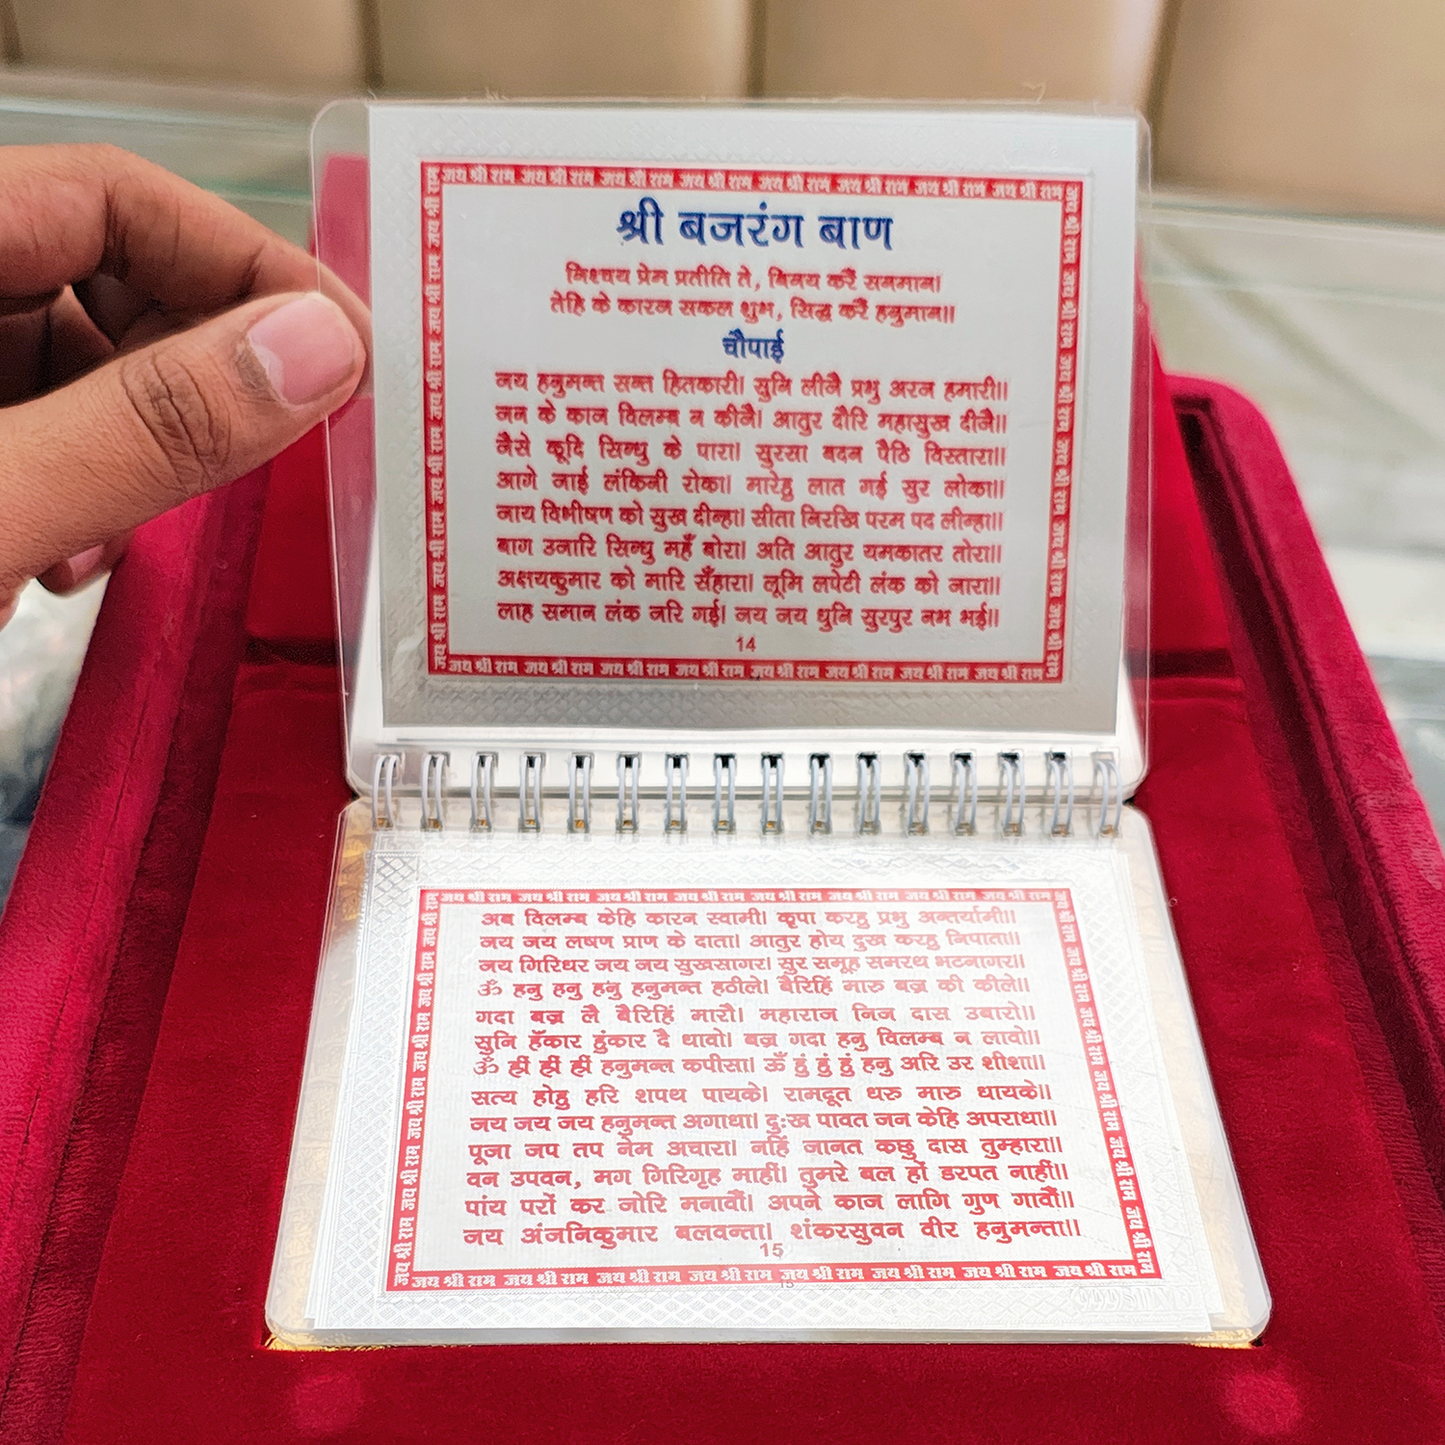 जय श्री राम जय श्री राम जय श्री राम जय श्री राम जय श्री राम जय श्री राम जय श्री राम जय श्री राम
श्री बजरंग बाण
निश्चय प्रेम प्रतीति ते, बिनय करैं सनमान।
तेहि के कारज सकल शुभ, सिद्ध करैं हनुमान॥
चौपाई
जय हनुमन्त सन्त हितकारी। सुनि लीजै प्रभु अरज हमारी॥
जन के काज विलम्ब न कीजै। आतुर दौरि महासुख दीजै॥
जैसे कूदि सिन्धु के पारा। सुरसा बदन पैठि विस्तारा॥
आगे जाई लंकिनी रोका। मारेहु लात गई सुर लोका॥
जाय विभीषण को सुख दीन्हा। सीता निरखि परम पद लीन्हा॥
बाग उजारि सिन्धु महँ बोरा। अति आतुर यमकातर तोरा॥
अक्षयकुमार को मारि सँहारा। लूमि लपेटी लंक को जारा॥
लाह समान लंक जरि गई। जय जय धुनि सुरपुर नभ भई॥
14
जय श्री राम जय श्री राम जय श्री राम जय श्री राम जय श्री राम जय श्री राम जय श्री राम जय श्री राम
जय श्री राम जय श्री राम जय श्री राम जय श्री राम जय श्री राम जय श्री राम जय श्री राम जय श्री राम
अब विलम्ब केहि कारन स्वामी। कृपा करहु प्रभु अन्तर्यामी॥
जय जय लषण प्राण के दाता। आतुर होय दुख करहु निपाता॥
जय गिरिधर जय जय सुखसागर। सुर समूह समरथ भटनागर॥
ॐ हनु हनु हनु हनुमन्त हठीले। बैरिहिं मारु बज्र की कीले॥
गदा बज्र लै बैरिहिं मारौ। महाराज निज दास उबारो॥
सुनि हँकार हुंकार दै धावो। बज्र गदा हनु विलम्ब न लावो॥
ॐ ह्रीं ह्रीं ह्रीं हनुमन्त कपीसा। ऊँ हुं हुं हुं हनु अरि उर शीशा॥
सत्य होहु हरि शपथ पायके। रामदूत धरु मारु धायके॥
जय जय जय हनुमन्त अगाधा। दुःख पावत जन केहि अपराधा॥
पूजा जप तप नेम अचारा। नहिं जानत कछु दास तुम्हारा॥
वन उपवन, मग गिरिगृह माहीं। तुमरे बल हों डरपत नाहीं॥
पांय परों कर जोरि मनावौं। अपने काज लागि गुण गावौं॥
जय अंजनिकुमार बलवन्ता। शंकरसुवन वीर हनुमन्ता॥
15
जय श्री राम जय श्री राम जय श्री राम जय श्री राम जय श्री राम जय श्री राम जय श्री राम जय श्री राम
15